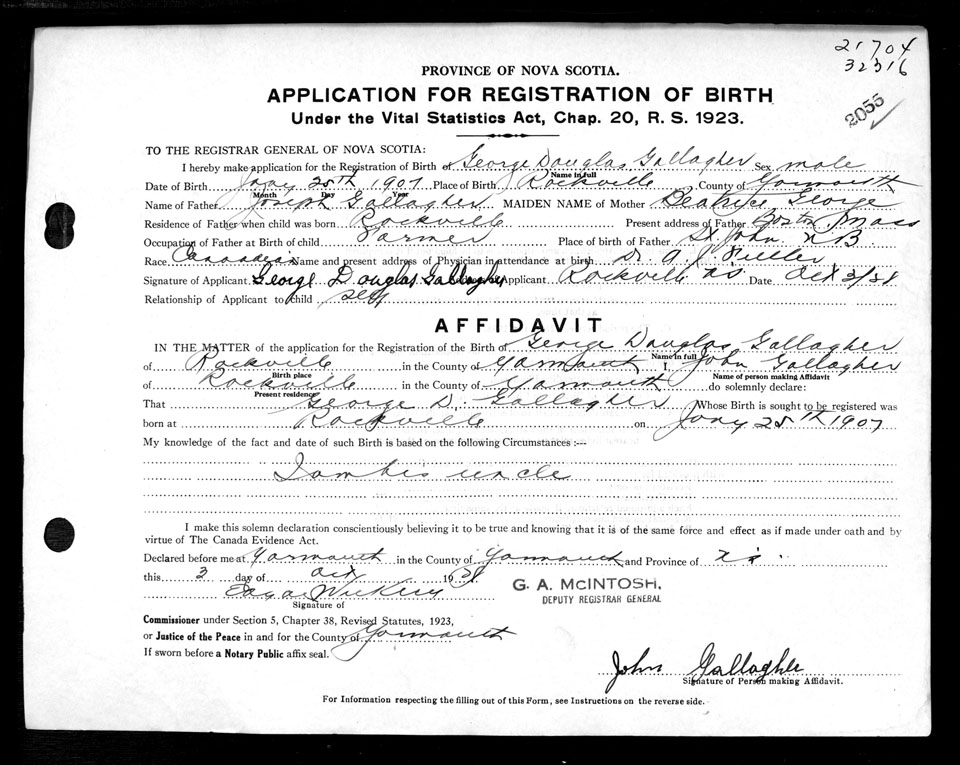 21704
32316
2055
PROVINCE OF NOVA SCOTIA.
APPLICATION FOR REGISTRATION OF BIRTH
Under the Vital Statistics Act, Chap. 20, R. S. 1923.
TO THE REGISTRAR GENERAL OF NOVA SCOTIA:
I hereby make application for the Registration of Birth of George Douglas Gallagher Sex male
Name in full
Date of Birth Jany 25th 1907 Place of Birth Rockville County of Yarmouth
Month Day Year
Name of Father Joseph Gallagher MAIDEN NAME of Mother Beatrice George
Residence of Father when child was born Rockville Present address of Father Boston Mass
Occupation of Father at Birth of child Farmer Place of Birth of Father St John N.B.
Race Canadian Name and present address of Physician in attendance at birth Dr. A. J. Fuller
Signature of Applicant George Douglas Gallagher Applicant Rockville N.S. Date Oct 3/38
Relationship of Applicant to child self
AFFIDAVIT
IN THE MATTER of the application for the Registration of the Birth of George Douglas Gallagher
Name in full
of Rockville in the County of Yarmouth I, John Gallagher
Birth place Name of person making Affidavit
of Rockville in the County of Yarmouth do solemnly declare:
Present residence
That George D. Gallagher Whose Birth is sought to be registered was
born at Rockville on Jany 25th 1907
My knowledge of the fact and date of such Birth is based on the following Circumstances :---
I am his uncle
I make this solemn declaration conscientiously believing it to be true and knowing that it is of the same force and effect as if made under oath and by
virtue of The Canada Evidence Act.
Declared before me at Yarmouth in the County of Yarmouth and Province of N.S.
this 3 day of Oct 1938
G. A. McINTOSH,
DEPUTY REGISTRAR GENERAL
Edgar
Signature of
Commissioner under Section 5, Chapter 38, Revised Statutes, 1923,
or Justice of the Peace in and for the County of Yarmouth
If sworn before a Notary Public affix seal.
John Gallagher
Signature of Person making Affidavit.
For Information respecting the filling out of this Form, see Instructions on the reverse side.